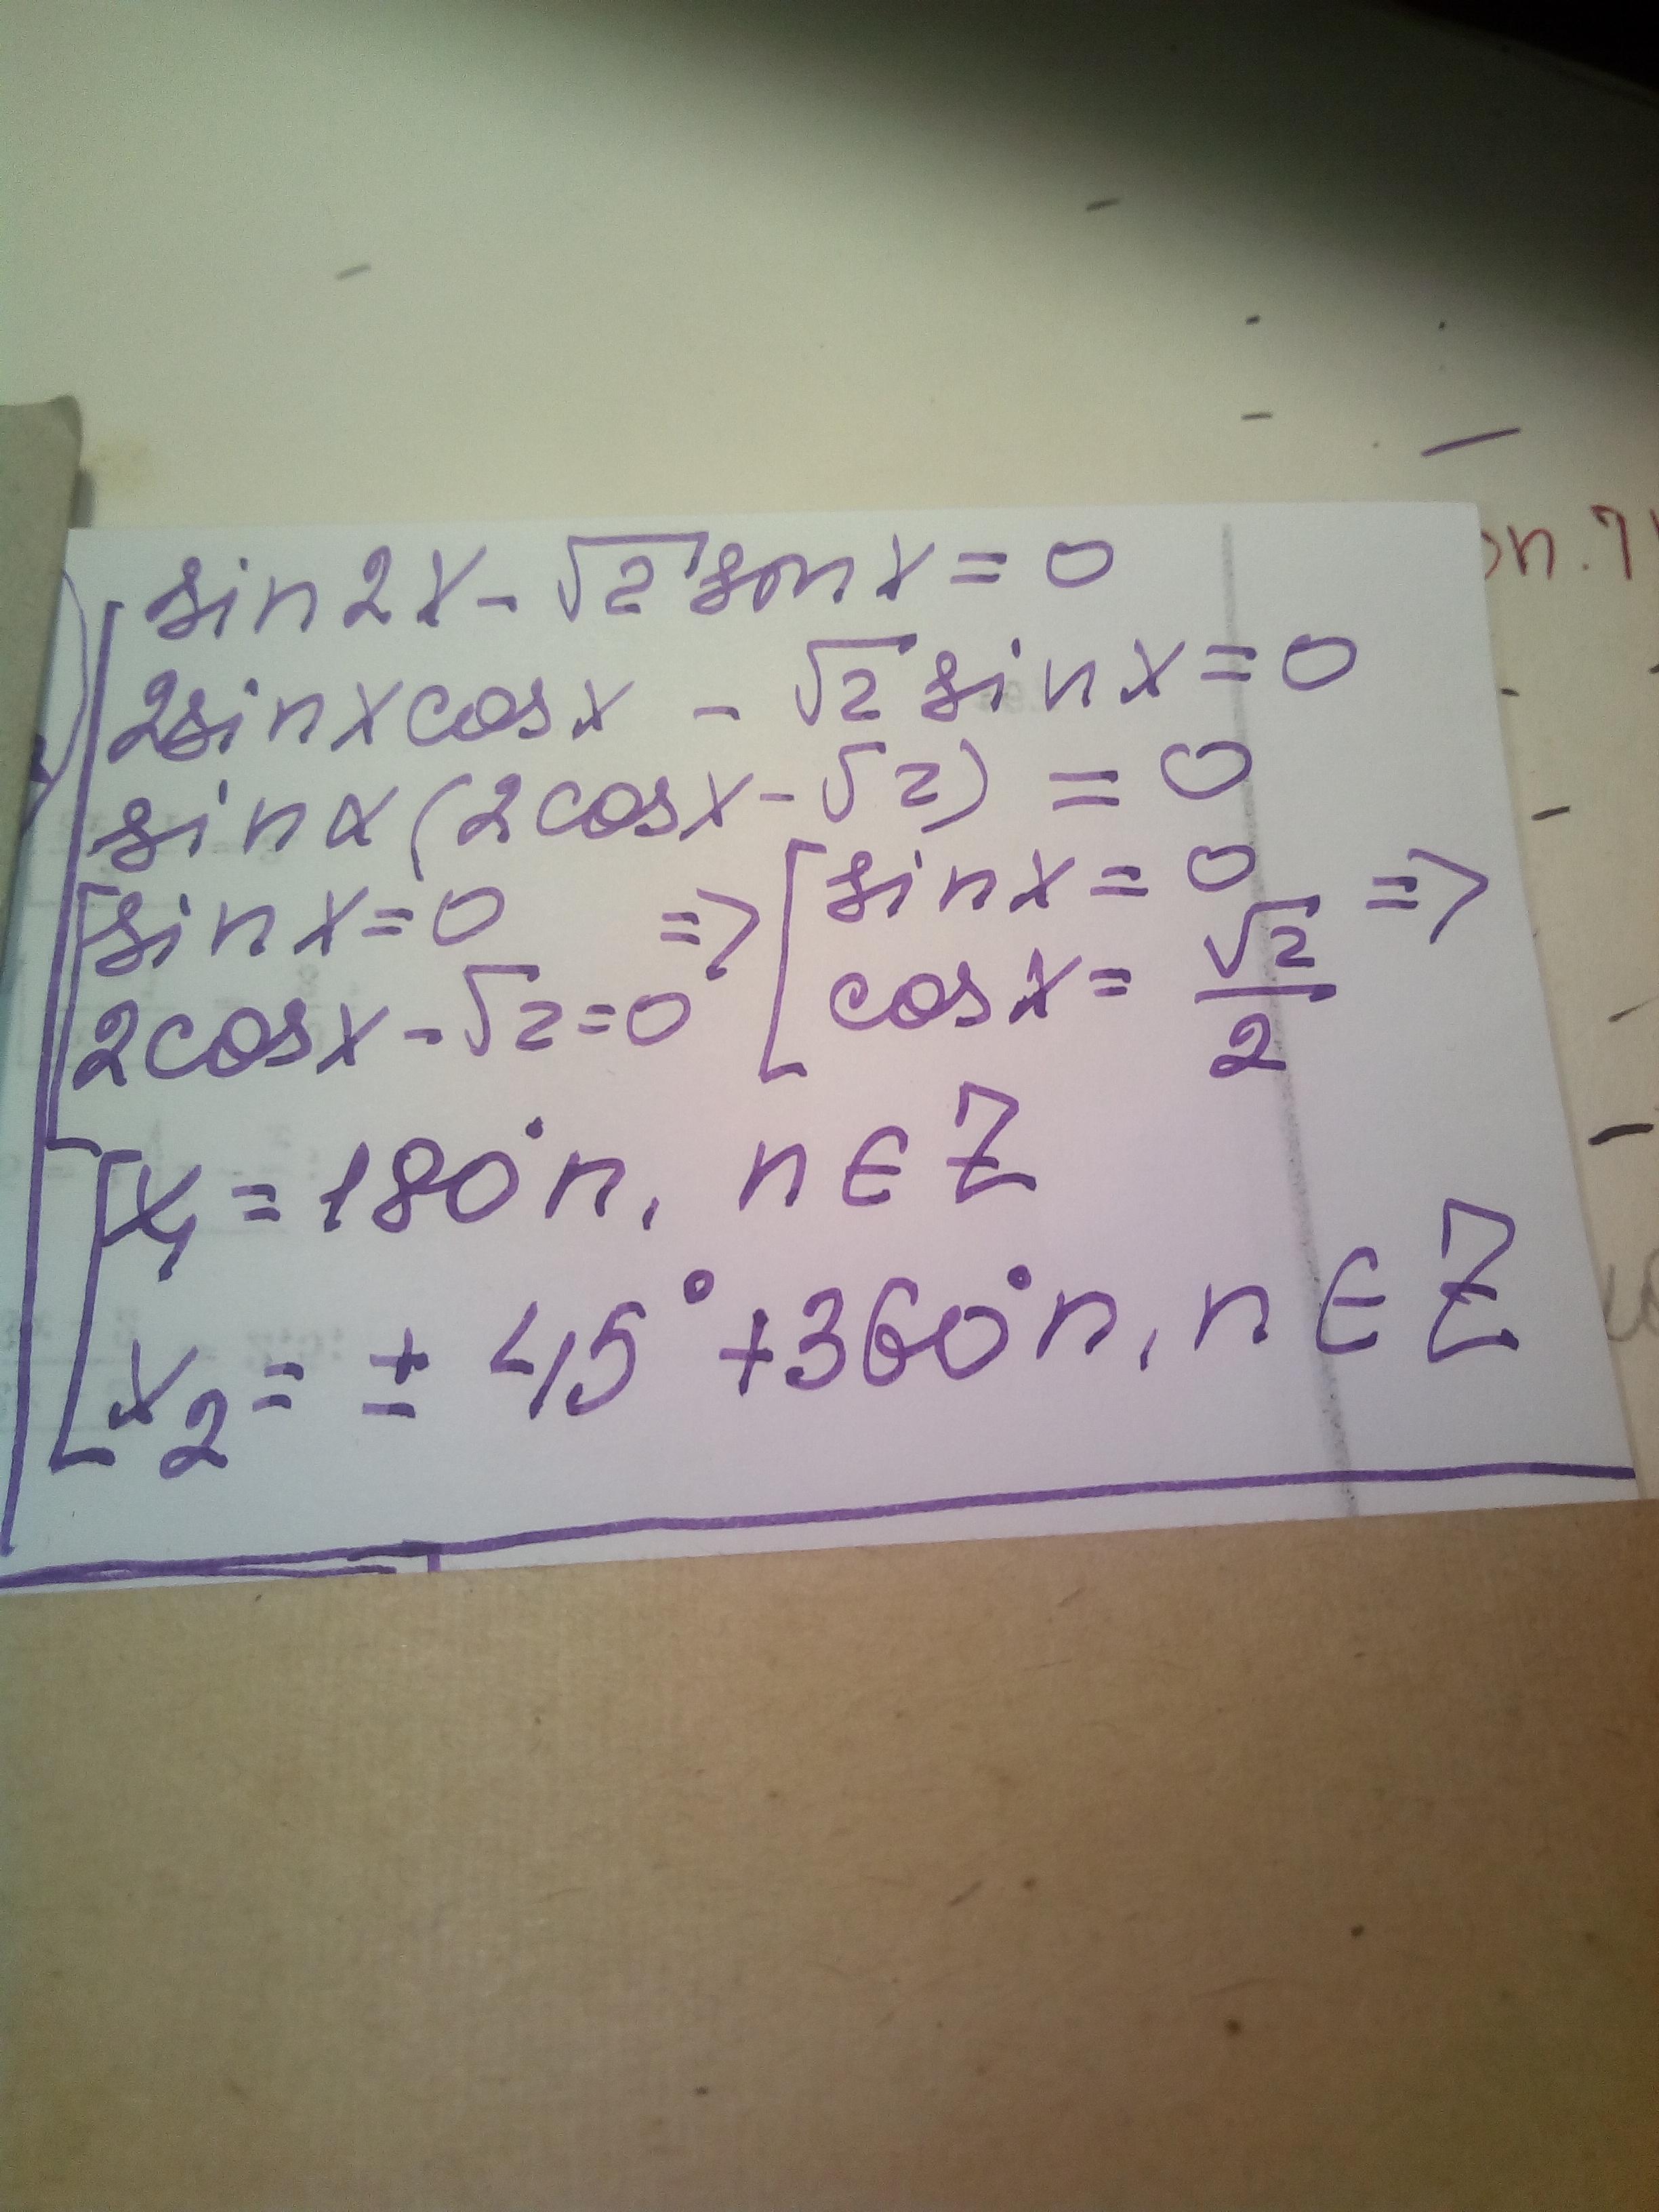 sin2x - √2 sinx = 0
2sinxcosx - √2 sinx = 0
sinx(2cosx - √2) = 0
[sinx = 0 => [sinx = 0 =>
2cosx - √2 = 0 cosx = √2/2
[x₁ = 180°n, n ∈ Z
x₂ = ± 45° + 360°n, n ∈ Z